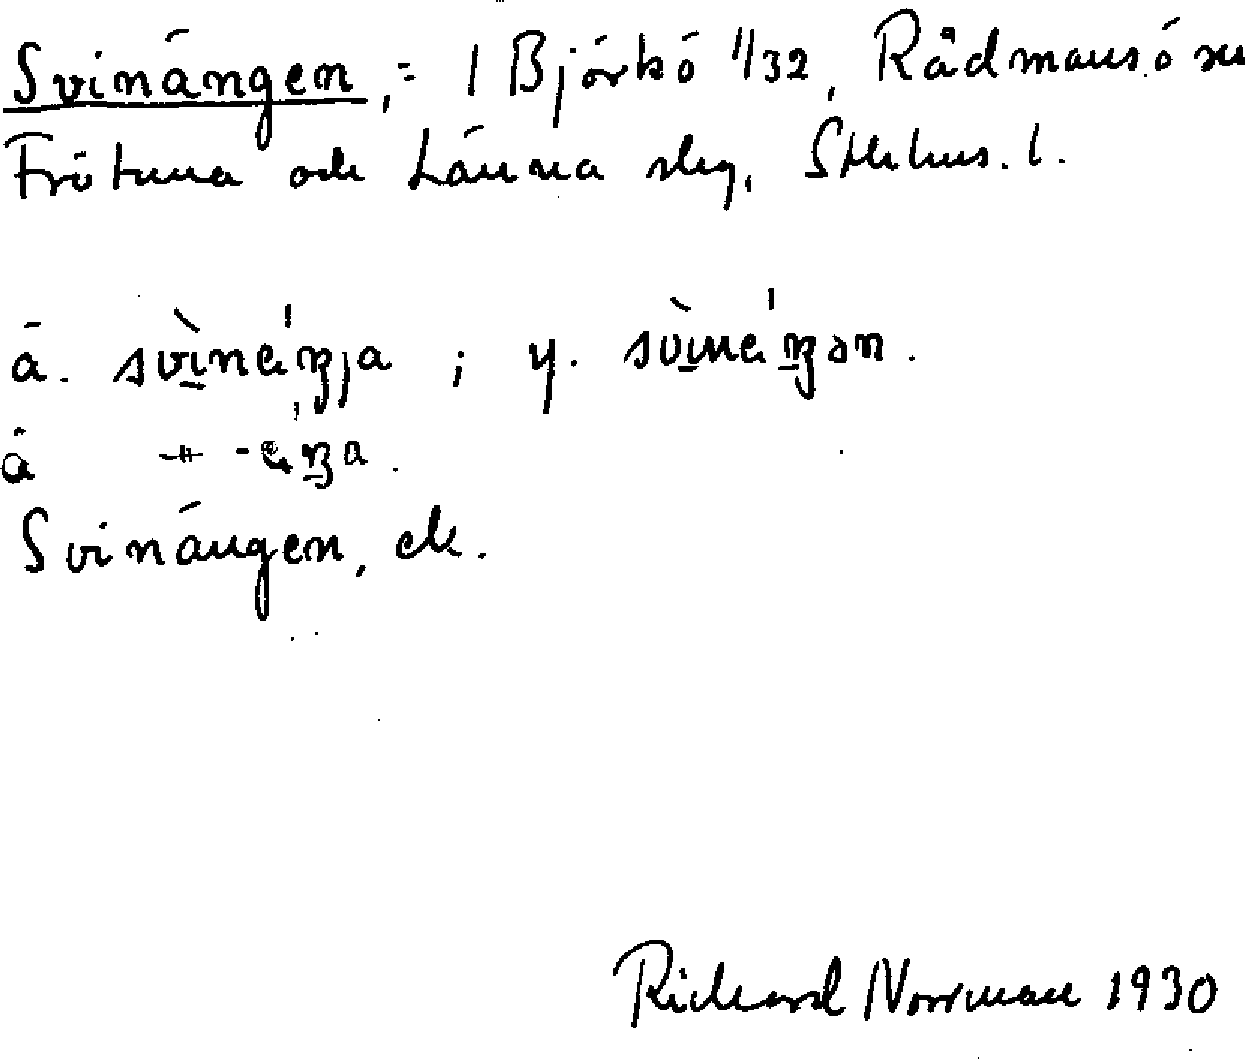 Svinängen, = 1 Björkö 1/32, Rådmansö sn
Frötuna och Länna slg, Sthlms. l.
ä. svìnéŋja ; y. svìnéŋən.
ä -éŋa.
Svinängen, ek.
Richard Norrman 1930